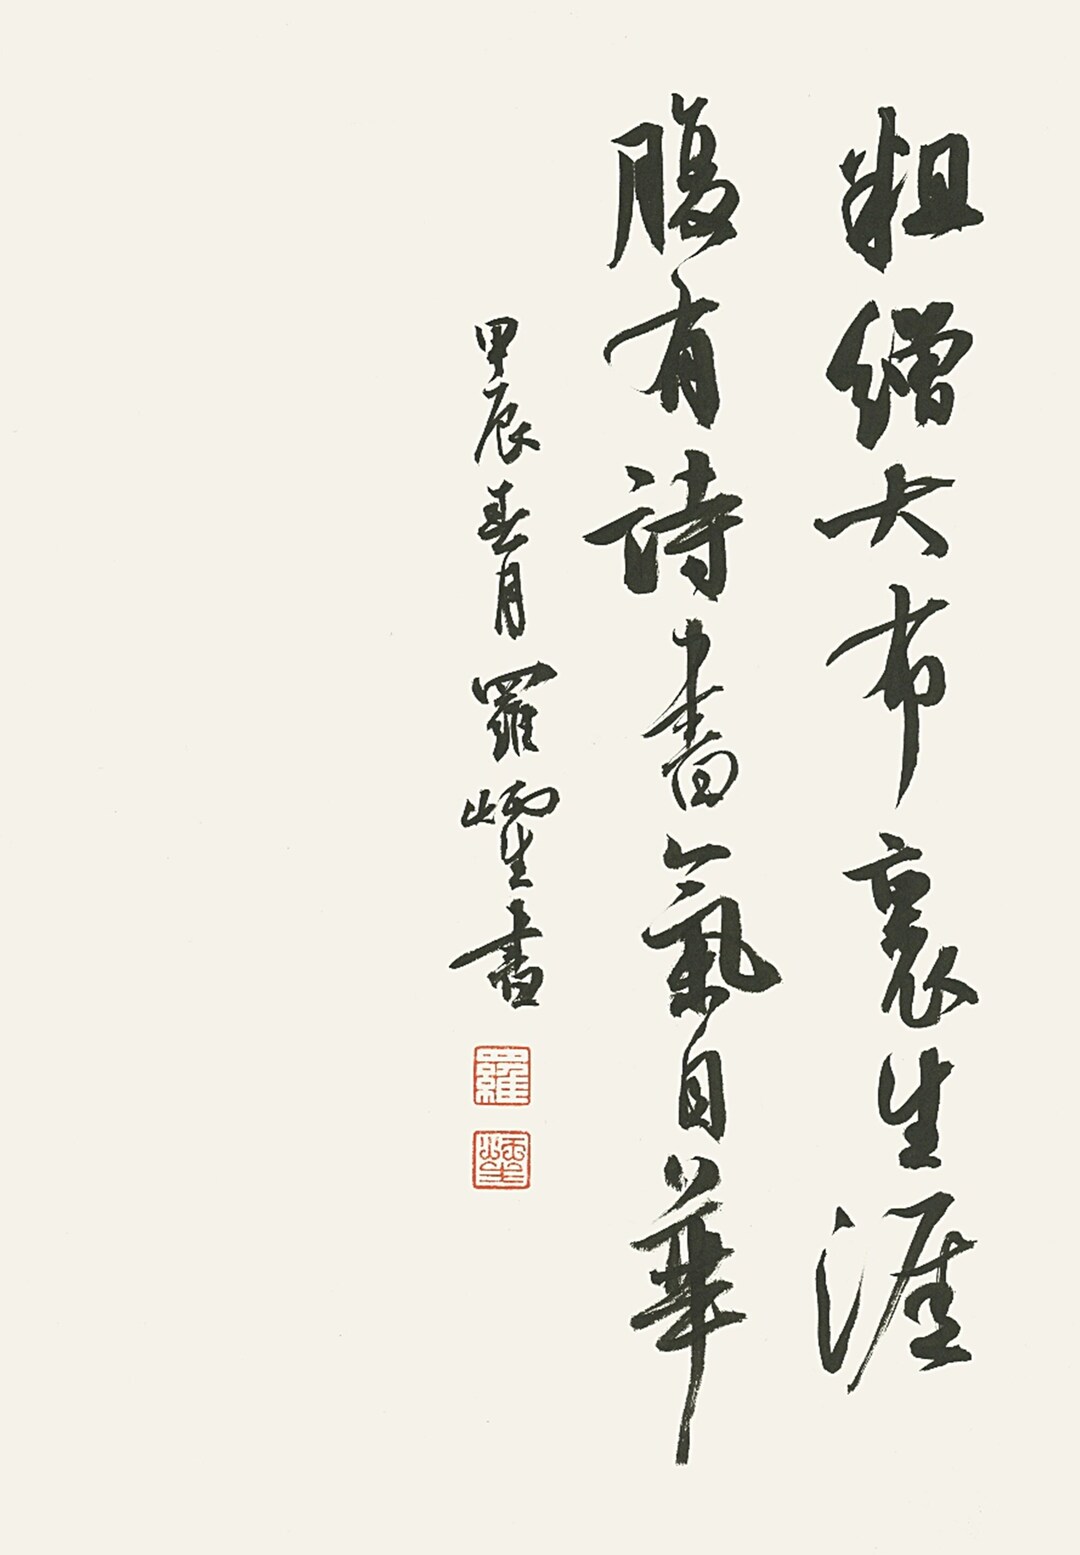 粗繒大布裹生涯
腹有詩書氣自華
甲辰春月羅炳生書
羅
炳生